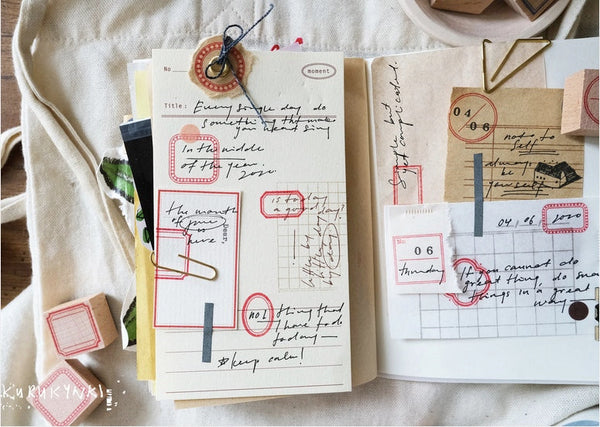 No
moment
Title:
Every single day do
something that make
you want sing
In the middle
of the year.
2020
the month
of june
is
here
Dear,
is today
a good day?
day by
day
no1 thing that
I have to do
today
keep calm!
Simple but
complicated.
04
06
not to
self
always
be
yourself
04 06 2020
No:
06
thursday
If you cannot do
great thing, do small
things in a great
way
KURUKYNKI